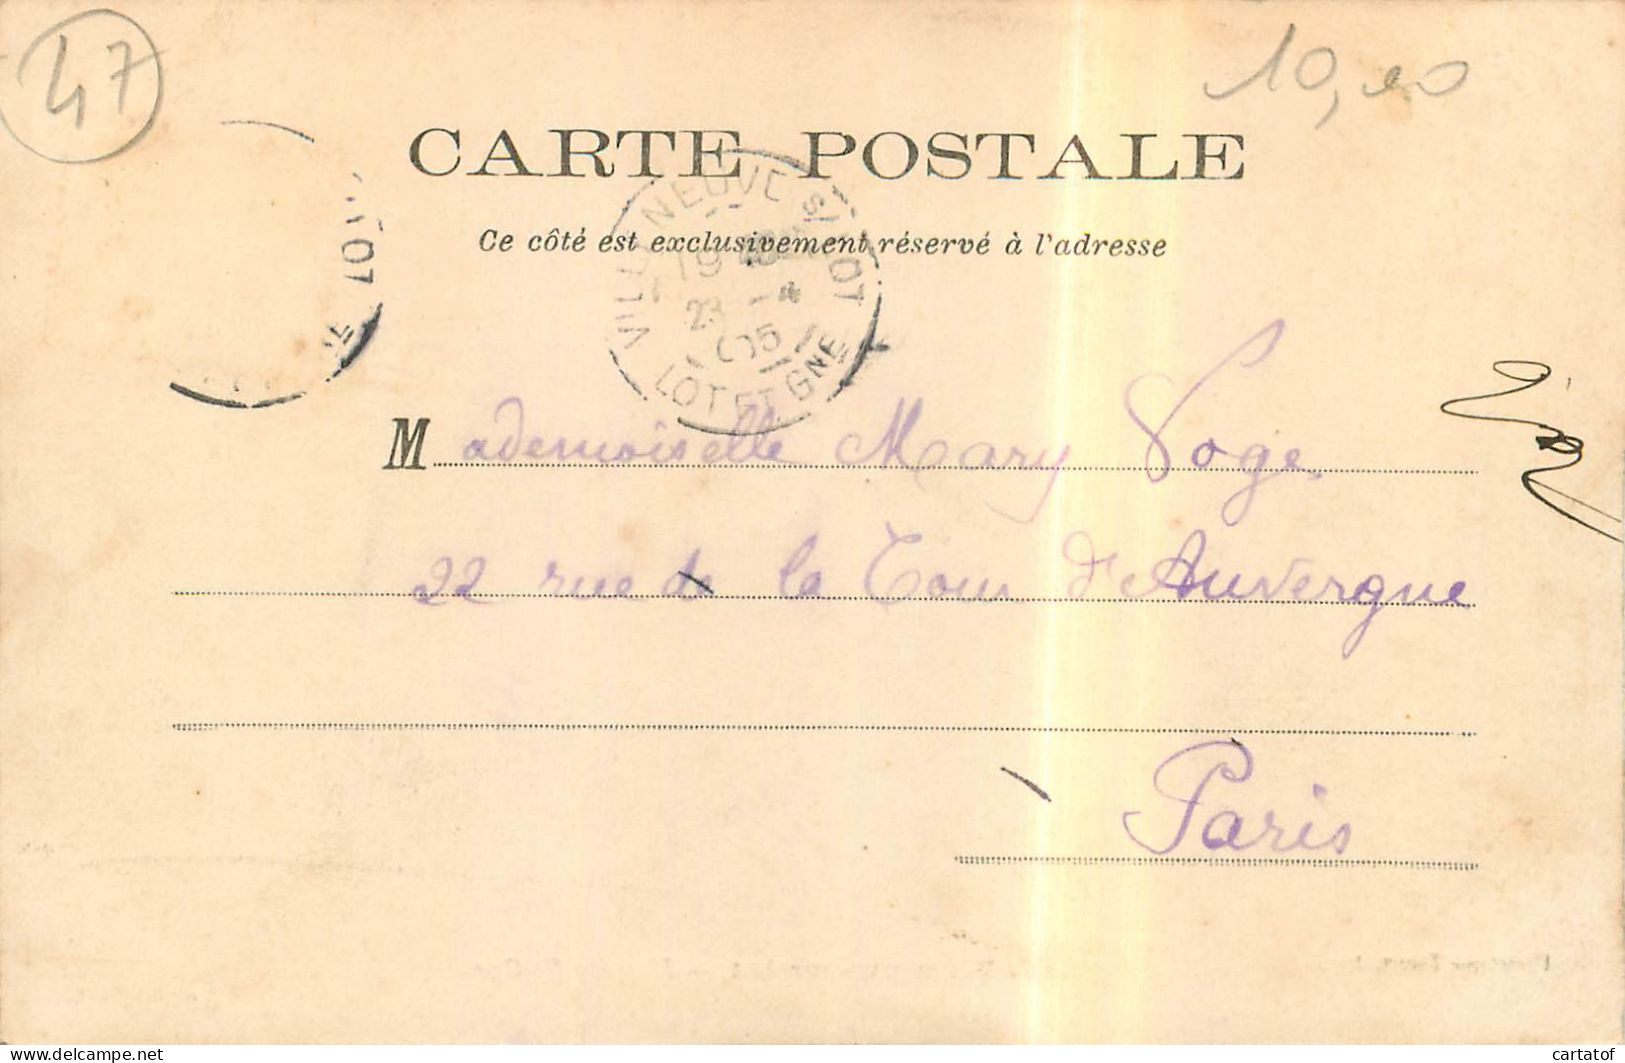 47
10,00
CARTE POSTALE
Ce côté est exclusivement réservé à l'adresse
VILLENEUVE S/ LOT
23 - 4
05
LOT ET GNE
LOT
Mademoiselle Mary Poge
22 rue de la Tour d'Auvergne
Paris
cartatof